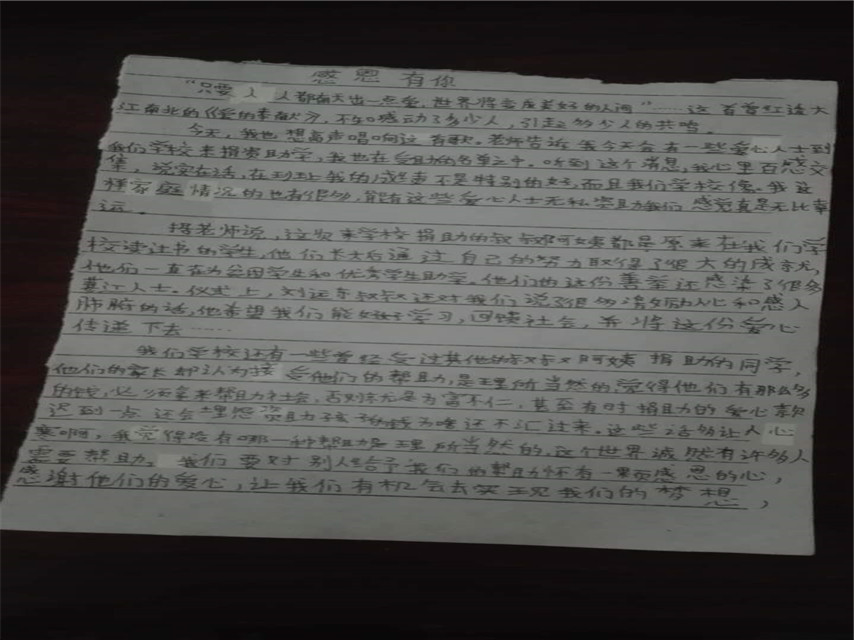 感恩有你
“只要人人都献出一点爱,世界将变成美好的人间”……这首曾红遍大
江南北的《爱的奉献》,不知感动了多少人,引起多少人的共鸣。
今天,我也想高声唱响这首歌。老师告诉我今天会有一些爱心人士到
我们学校来捐资助学,我也在受助的名单之中。听到这个消息,我心里百感交
集,说实在话,在到我的成绩不是特别的好,而且我们学校像我这
种家庭情况的也有很多,能有这些爱心人士无私资助我们,感觉真是无比幸
运。
据老师说,这次来学校捐助的叔叔阿姨都是原来在我们学
校读过书的学生,他们长大后通过自己的努力取得了很大的成就,
他们一直在为贫困学生和优秀学生助学。他们的这份善举还感染了很多
龚江人士。仪式上,刘远东叔叔还对我们说了很多激励人心和感人
肺腑的话,他希望我们能好好学习,回馈社会,并将这份爱心
传递下去……
我们学校还有一些曾经受过其他的叔叔阿姨捐助的同学,
他们的家长却认为接受他们的帮助,是理所当然的,觉得他们有那么多
的钱,必须拿来帮助社会,否则就是为富不仁,甚至有时捐助的爱心款
迟到一点还会埋怨资助孩子的钱为啥还不汇过来。这些话多让人心
寒啊,我觉得没有哪一种帮助是理所当然的,这个世界诚然有许多人
需要帮助。我们要对别人给予我们的帮助怀有一颗感恩的心,
感谢他们的爱心,让我们有机会去实现我们的梦想,